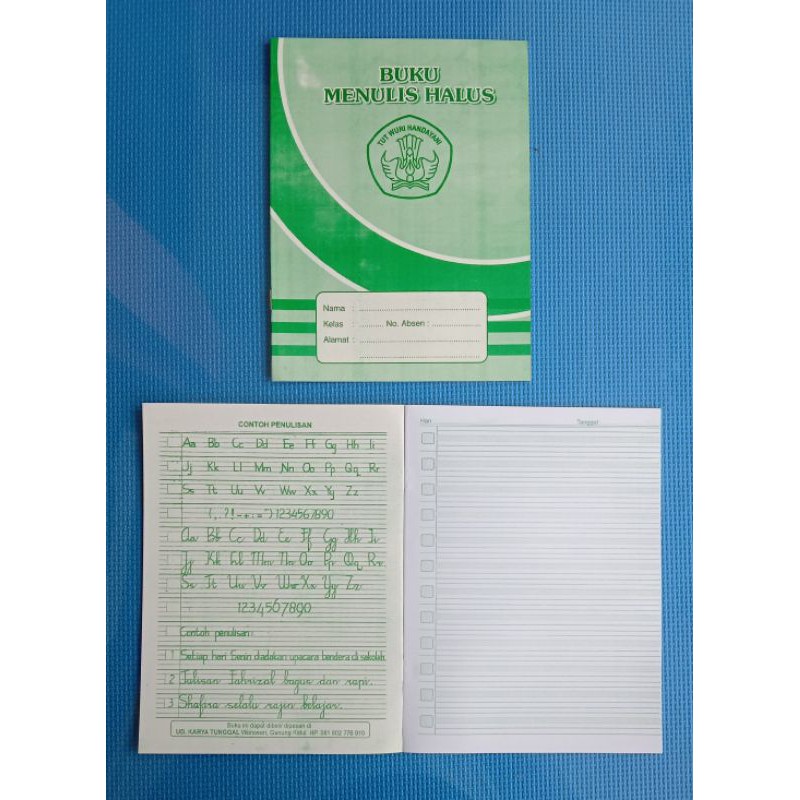 BUKU
MENULIS HALUS
TUT WURI HANDAYANI
Nama :
Kelas : No. Absen :
Alamat :
CONTOH PENULISAN
Aa Bb Cc Dd Ee Ff Gg Hh Ii
Jj Kk Ll Mm Nn Oo Pp Qq Rr
Ss Tt Uu Vv Ww Xx Yy Zz
( , . ? ! - + : = " ) 1234567890
Aa Bb Cc Dd Ee Ff Gg Hh Ii
Jj Kk Ll Mm Nn Oo Pp Qq Rr
Ss Tt Uu Vv Ww Xx Yy Zz
1234567890
Contoh penulisan :
1 Setiap hari Senin diadakan upacara bendera di sekolah
2 Tulisan Fahrizal bagus dan rapi.
3 Shafira selalu rajin belajar.
Buku ini dapat dibeli/dipesan di
UD. KARYA TUNGGAL Wonosari, Gunung Kidul HP
Hari Tanggal